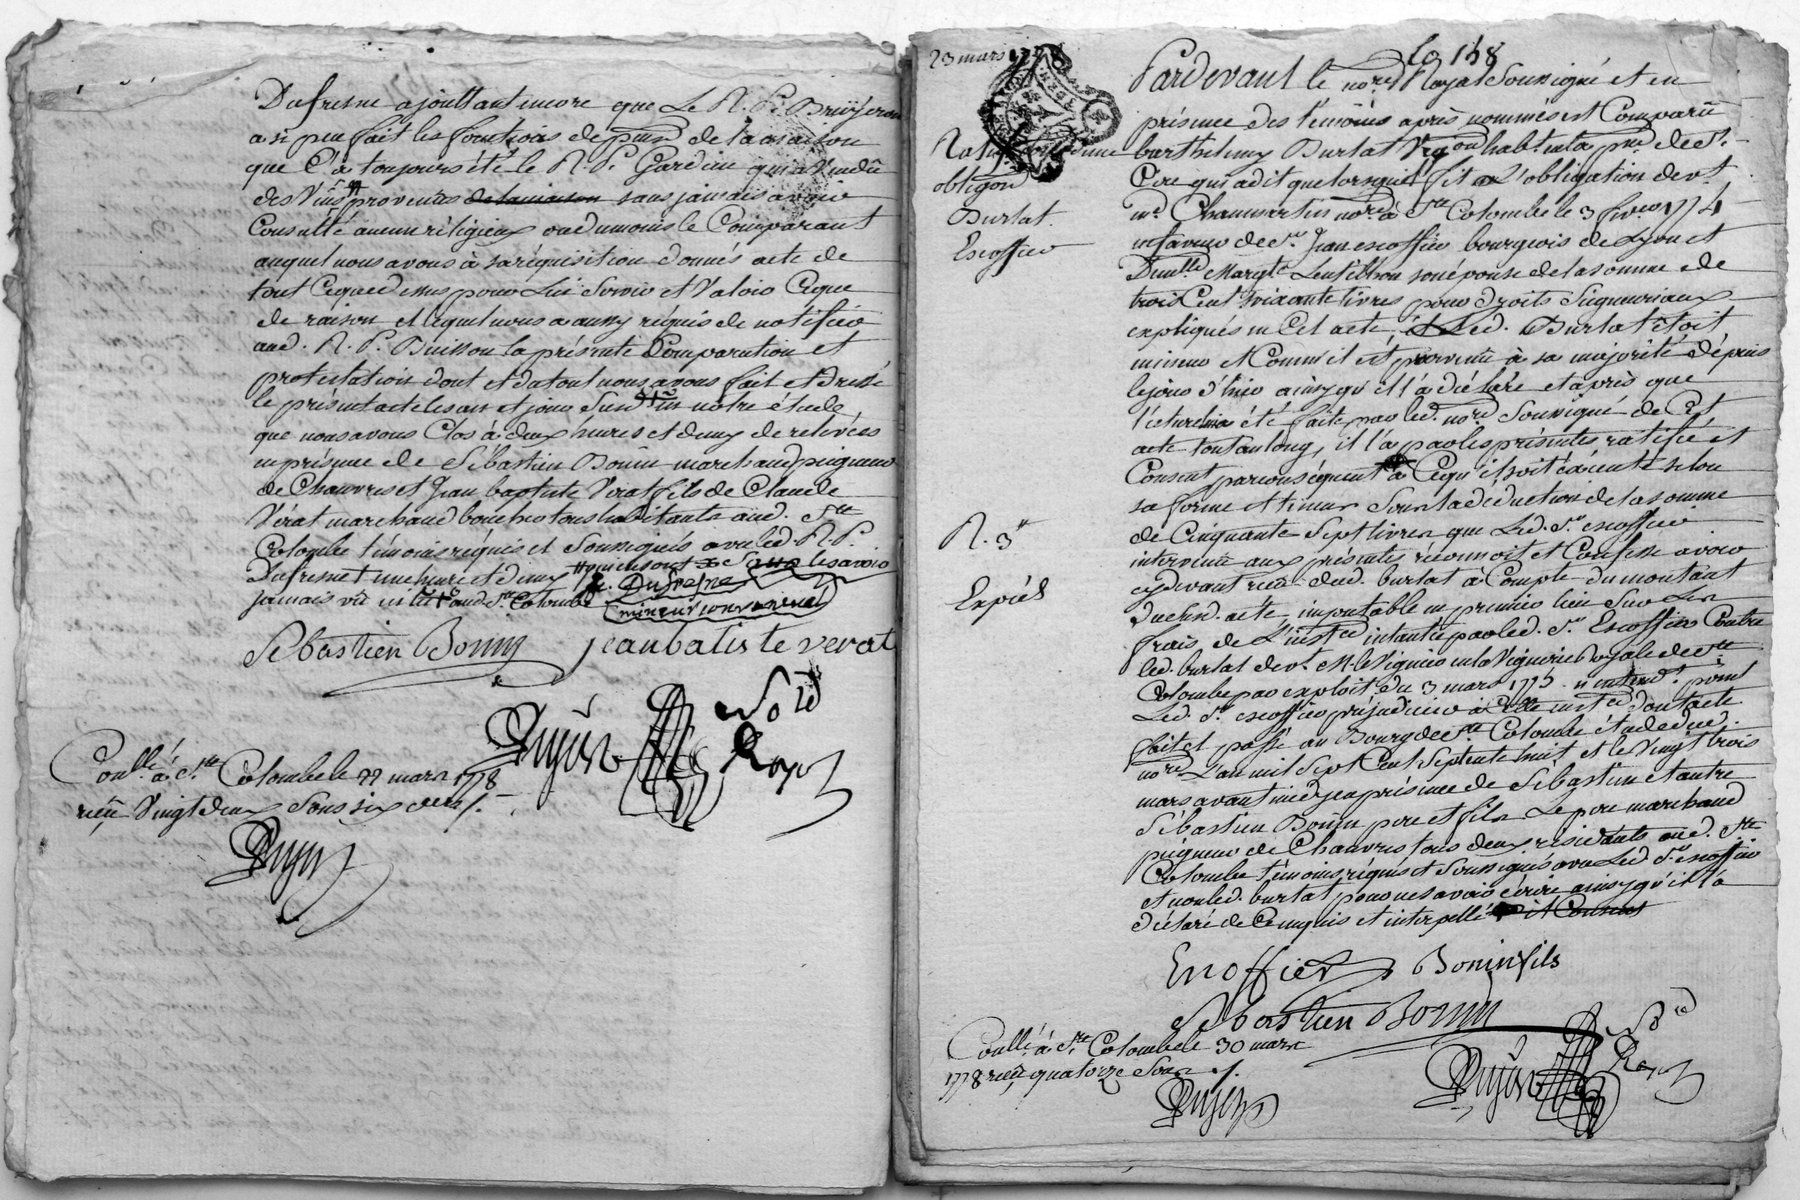 Dufresne ajouttant encore que Le R. P.
a si peu fait les fonctions de de la maison
que C'a toujours été le R. P. Gardien qui a Vendu
des Vins provenus de la maison sans jamais avoir
Consulté aucun réligieux ou du moins le Comparant
auquel nous avons à sa réquisition donnés acte de
tout Ceque dessus pour Lui Servir et Valoir Ceque
de raison et lequel nous a aussy réquis de notifier
aud. R. P. Buisson la présente Comparution et
protestation dont et du tout nous avons fait et dressé
le présent acte les an et jour Susd. en nôtre étude
que nous avons Clos à deux heures et demy de relevées
en présence de Sébastien Bonin marchand peigneur
de Chanvres et Jean baptiste Verat fils de Claude
Vérat marchand boucher tous habitants aud. Ste
Colombe témoins réquis et Soussignés avec led. R. P.
Dufresne une heure et demy
jamais vû aud. Ste Colombe
Dufresne
mineur conventuel
Sebastien Bonin jeanbatiste verat
Dujon Not.
Roy.
Conllé. à Ste Colombe le 27 mars 1778
reçu Vingt deux Sous six den.
Dujon
23 mars 1778
158
Pardevant le nore. Royal Soussigné et en
présence des témoins après nommés est Comparu
barthelemy Burlat Vigon habitant la psse. de St.
Cire qui a dit que lorsqu'il fit L'obligation devt.
me. Chaumartin nore. à Ste Colombe le 3 fevrier 1774
en faveur de Sr. Jean escoffier bourgeois de Lyon et
Dmlle. Margte. Lentillon son épouse de la somme de
trois Cent soixante livres pour droits Seigneuriaux
expliqués en Cet acte, led. Burlat étoit
mineur et Comm'il est parvenu à sa majorité dépuis
le jour d'hier ainsy qu'il l'a déclaré et après que
lecture lui a été faite par led. nore. Soussigné de Cet
acte tout au long, il l'a par les présentes ratifié et
Consent par conséquent à Cequ'il soit éxécuté selon
sa forme et teneur Sous la déduction de la somme
de Cinquante Sept livres que Led. Sr. escoffier
intervenu aux présentes réconnoit et Confesse avoir
cy devant reçu dud. burlat à Compte du montant
dud. acte imputable en premier lieu Sur Les
frais de L'instce. intantée par led. Sr. Escoffier Contre
led. burlat devt. Mr. le Viguier en la Viguerie Royale de Ste
Colombe par exploit du 3 mars 1775 n'entend. point
Led. Sr. escoffier préjudicier à instce. dont acte
fait et passé au Bourg de Ste Colombe étude dud.
nore. L'an mil Sept Cent Septente huit et le Vingt trois
mars avant midy en présence de Sébastien et autre
Sébastien Bonin pere et fils Le pere marchand
peigneur de Chanvres tous deux résidants aud. Ste
Colombe témoins réquis et Soussignés avec Led. Sr. escoffier
et non led. burlat pour ne savoir écrire ainsy qu'il l'a
déclaré de Ce enquis et interpellé
obligaon
Burlat.
Escoffier
R. 3
Expiés
Escoffier Bonin fils
Sebastien Bonin
Conllé. à Ste Colombe le 30 mars
1778 reçu quatorze Sous
Dujon
Dujon Not.
Roy.